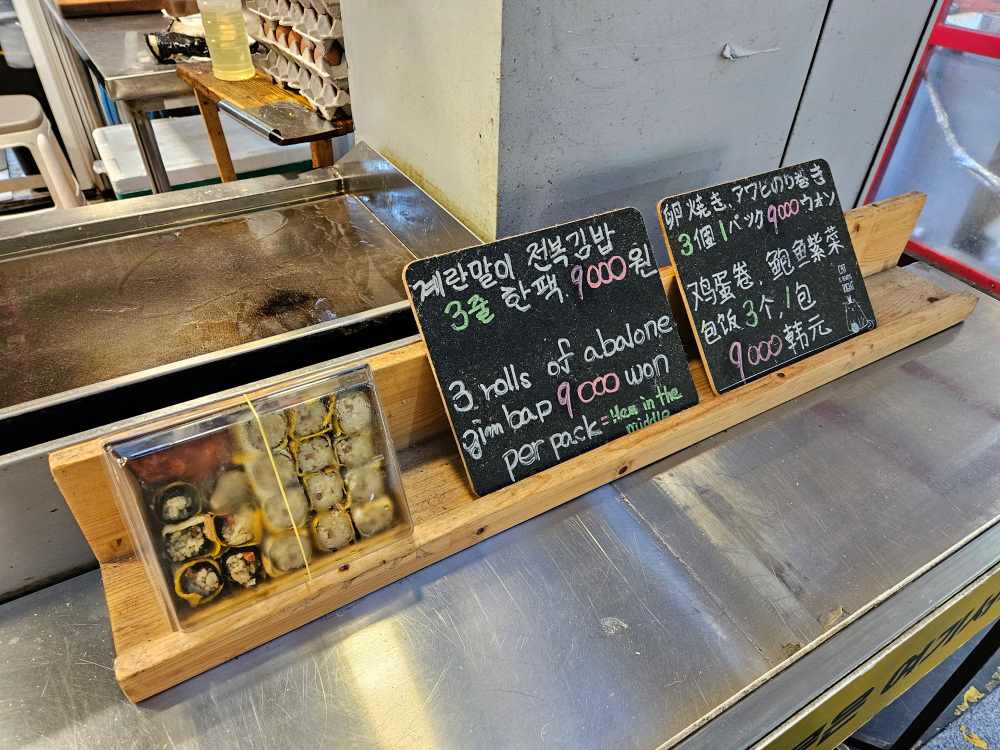 계란말이 전복김밥
3줄 한팩 9000원
3 rolls of abalone
gimbap 9000 won
per pack = in the
middle
卵焼き、アワビのり巻き
3個1パック9000ウォン
鸡蛋卷、鲍鱼紫菜
包饭3个,1包
9000韩元